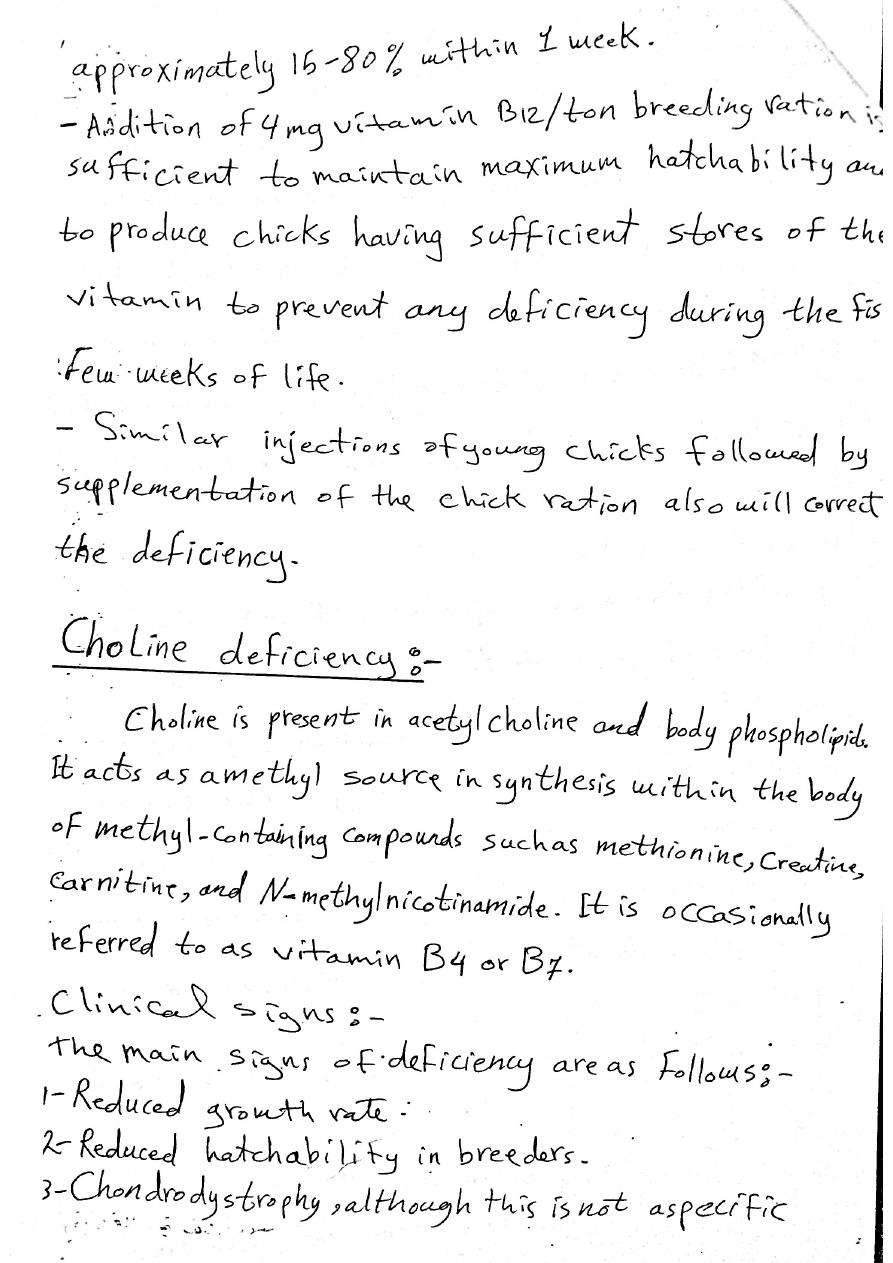 approximately 15-80% within 1 week.
- Addition of 4 mg vitamin B12/ton breeding ration is
sufficient to maintain maximum hatchability
to produce chicks having sufficient stores of the
vitamin to prevent any deficiency during the fis
few weeks of life.
- Similar injections of young chicks followed by
supplementation of the chick ration also will correct
the deficiency.
Choline deficiency :-
Choline is present in acetylcholine and body phospholipids.
It acts as a methyl source in synthesis within the body
of methyl-containing compounds such as methionine, Creatine,
Carnitine, and N-methylnicotinamide. It is occasionally
referred to as vitamin B4 or B7.
Clinical signs :-
The main signs of deficiency are as follows:-
1- Reduced growth rate.
2- Reduced hatchability in breeders.
3- Chondrodystrophy, although this is not a specific